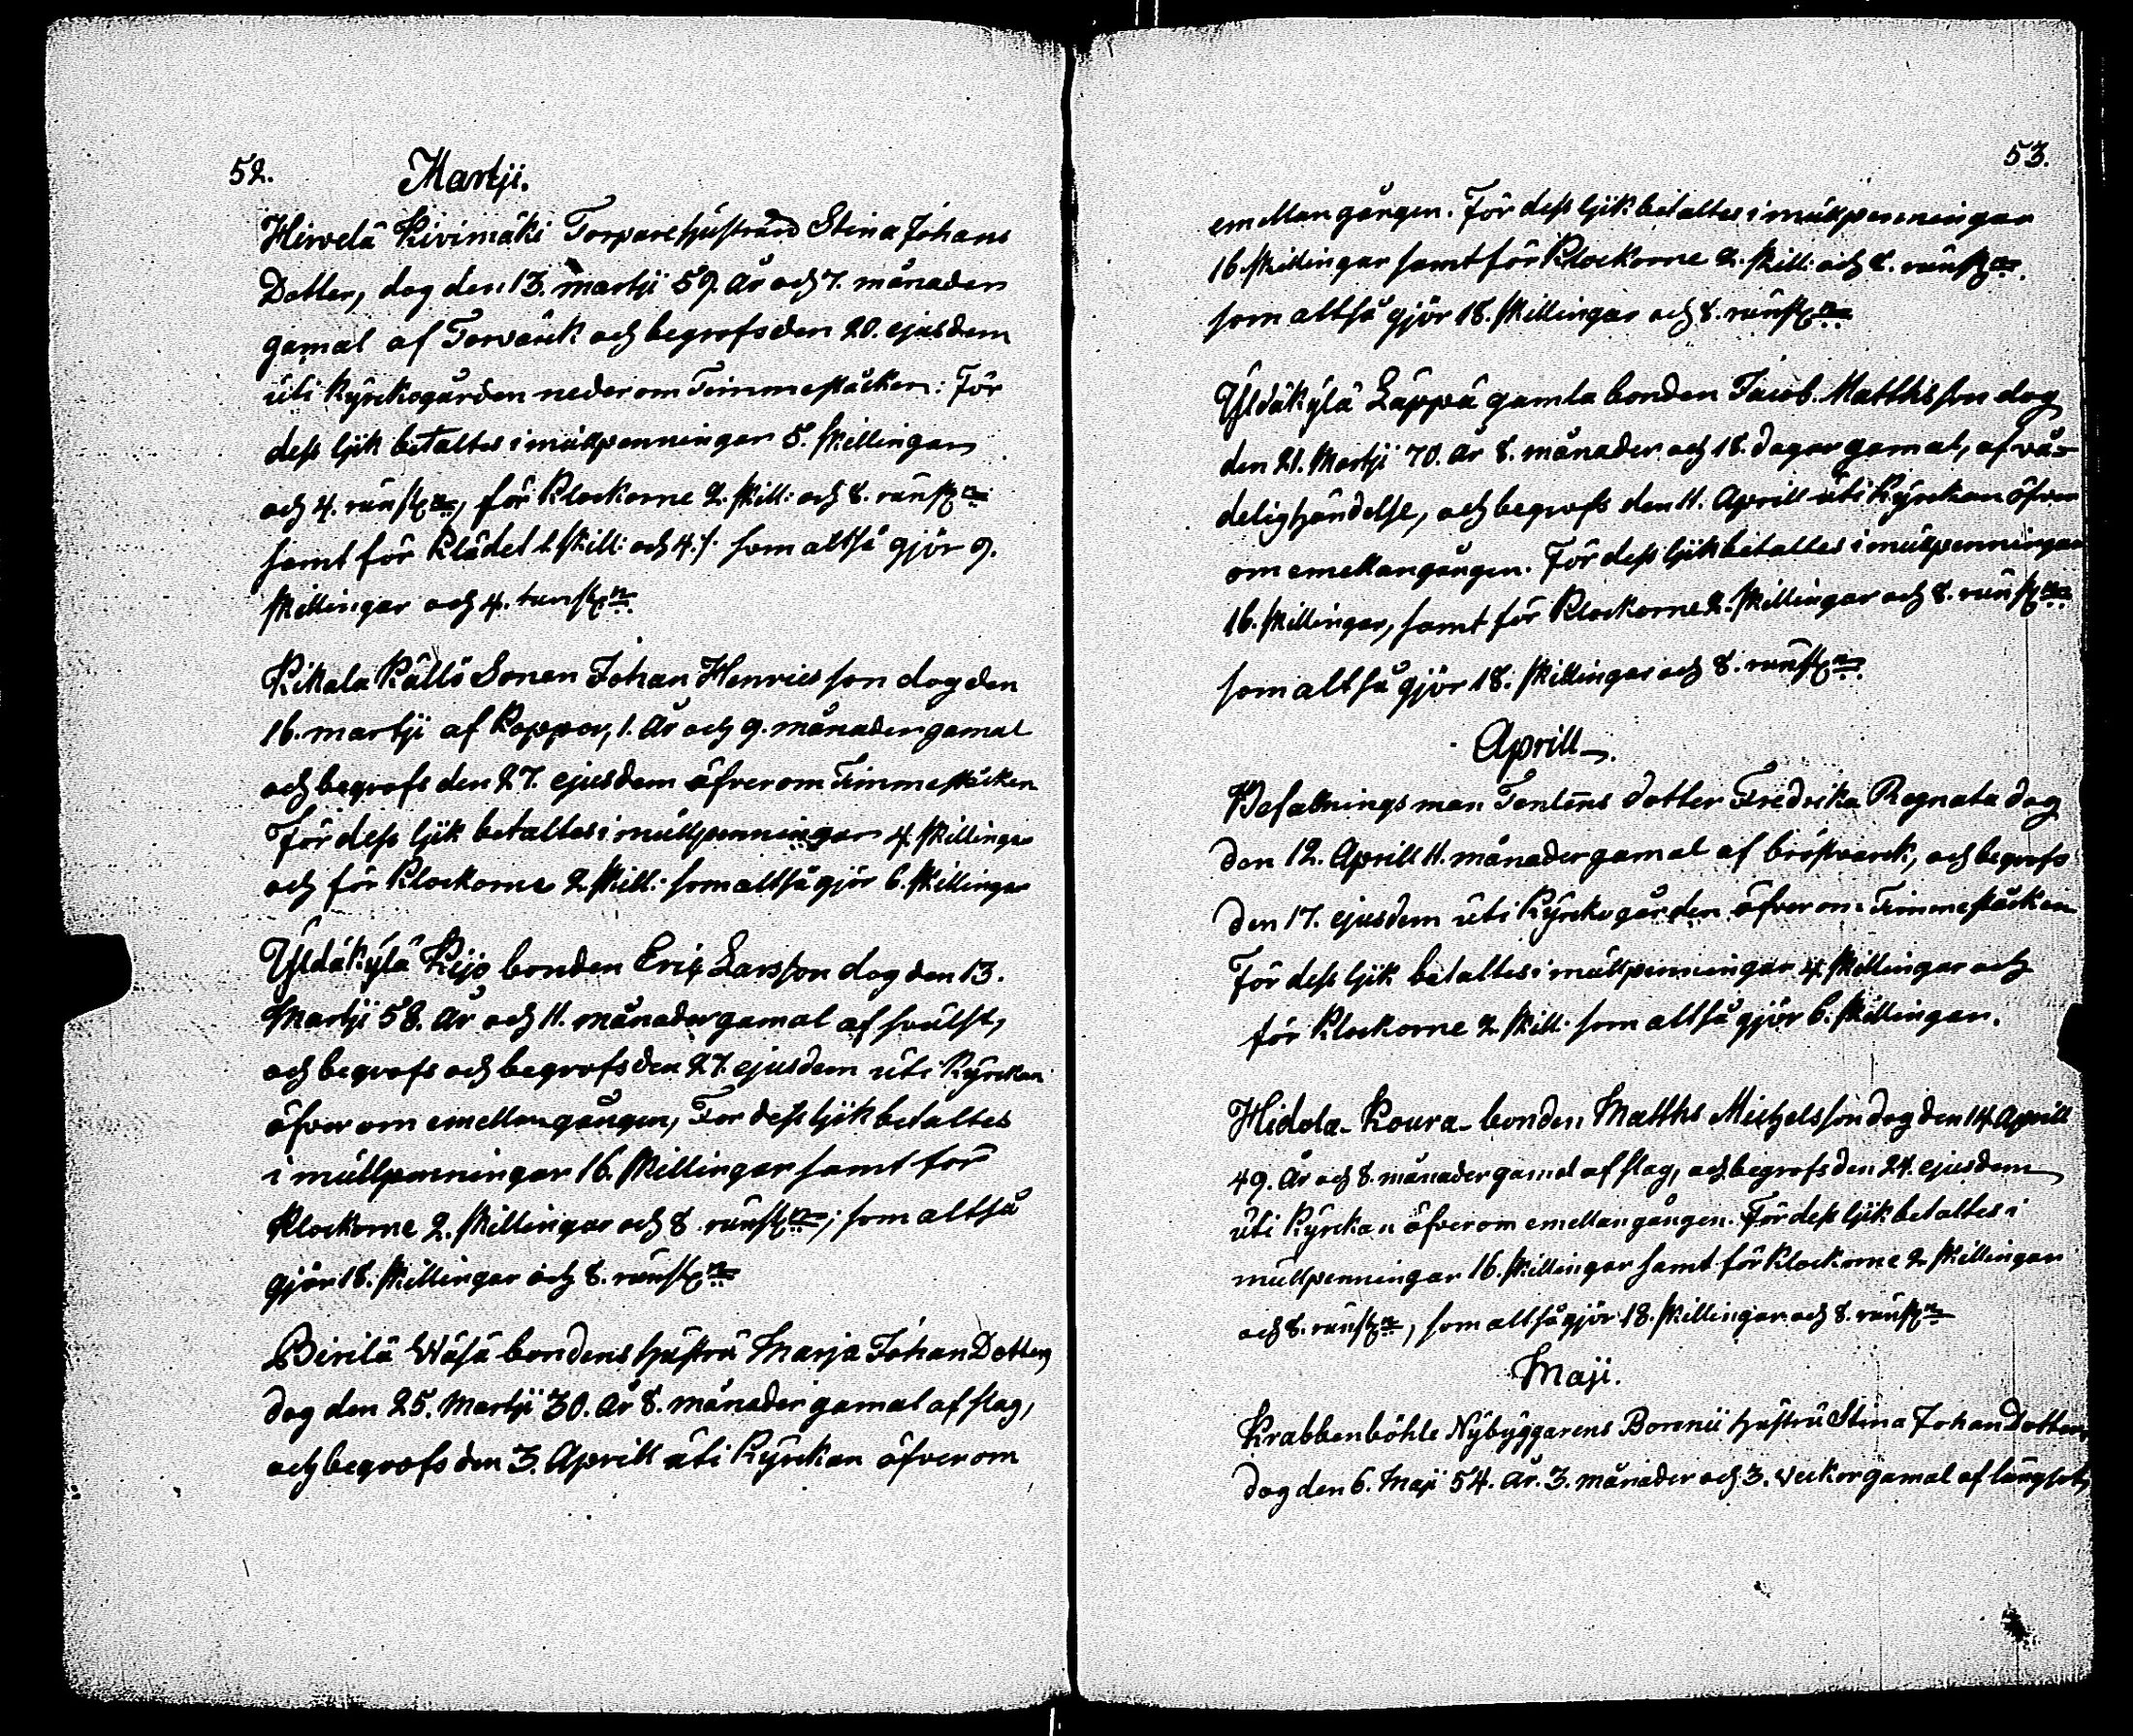 52.
Martji.
Hirvelä Kivimäki Torpare hustrun Stina Johans
Dotter, dog den 13. martji 59. år och 7. månader
gamal af Torvärck och begrofs den 20. ejusdem
uti kyrckogården neder om Timmestäcken: För
dess lijk betaltes i mullpenningar 5. skillingar
och 4. runst:n, för Klockorne 2. skill: och 8. runst:n
samt för Klädet 1. skill: och 4. r. som altså gjör 9.
skillingar och 4. runst:n
Kikala Källö Sonen Johan Henricsson dog den
16. martji af Koppor, 1. år och 9. månader gamal
och begrofs den 27. ejusdem öfver om Timmestäcken
För dess lijk betaltes i mullpenningar 4. skillingar
och för Klockorne 2. skill: som altså gjör 6. skillingar
Yldäkylä Kijo bonden Eric Larsson dog den 13.
Martji 58. år och 11. månader gamal af svulst,
och begrofs och begrofs den 27. ejusdem uti Kyrckan
öfver om emellangången, För dess lijk betaltes
i mullpenningar 16. skillingar samt för
Klockorne 2. skillingar och 8. runst:n; som altså
gjör 18. skillingar och 8. runst:n
Birilä Wäsä bondens hustru Marja JohanDotter,
dog den 25. Martji 30. år 8. månader gamal af slag,
och begrofs den 3. Aprill uti Kyrckan öfver om
53.
emellangången. För dess lijk betaltes i mullpenningar
16. skillingar samt för Klockorne 2. skill: och 8. runst:n.
som altså gjör 18. skillingar och 8. runst:n
Yldäkylä Läppä gamla bonden Jacob Matthsson dog
den 21. Martji 70. år 8. månader och 18. dagar gamal, af vå-
delig händelse, och begrofs den 11. Aprill uti Kyrckan öfver
om emellangången. För dess lijk betaltes i mullpenningar
16. skillingar, samt för Klockorne 2. skillingar och 8. runst:n
som altså gjör 18. skillingar och 8. runst:n.
Aprill.
Befallningsman Tenlens dotter Fredrika Regnata dog
den 12. Aprill 11. månader gamal af bröstvärck, och begrofs
den 17. ejusdem uti Kyrckogården öfver om Timmestäcken
För dess lijk betaltes i mullpenningar 4. skillingar och
för Klockorne 2. skill: som altså gjör 6. skillingar.
Hidola Koura bonden Matths Michelsson dog den 14. Aprill
49. år och 8. månader gamal af slag, och begrofs den 24. ejusdem
uti Kyrckan öfver om emellangången. För dess lijk betaltes i
mullpenningar 16. skillingar samt för Klockorne 2. skillingar
och 8. runst:n, som altså gjör 18. skillingar och 8. runst:n
Maji.
Krabbenböhle Nybyggarens Borenii hustru Stina JohanDotter,
dog den 6. Maji 54. år. 3. månader och 3. veckor gamal af lungsot,